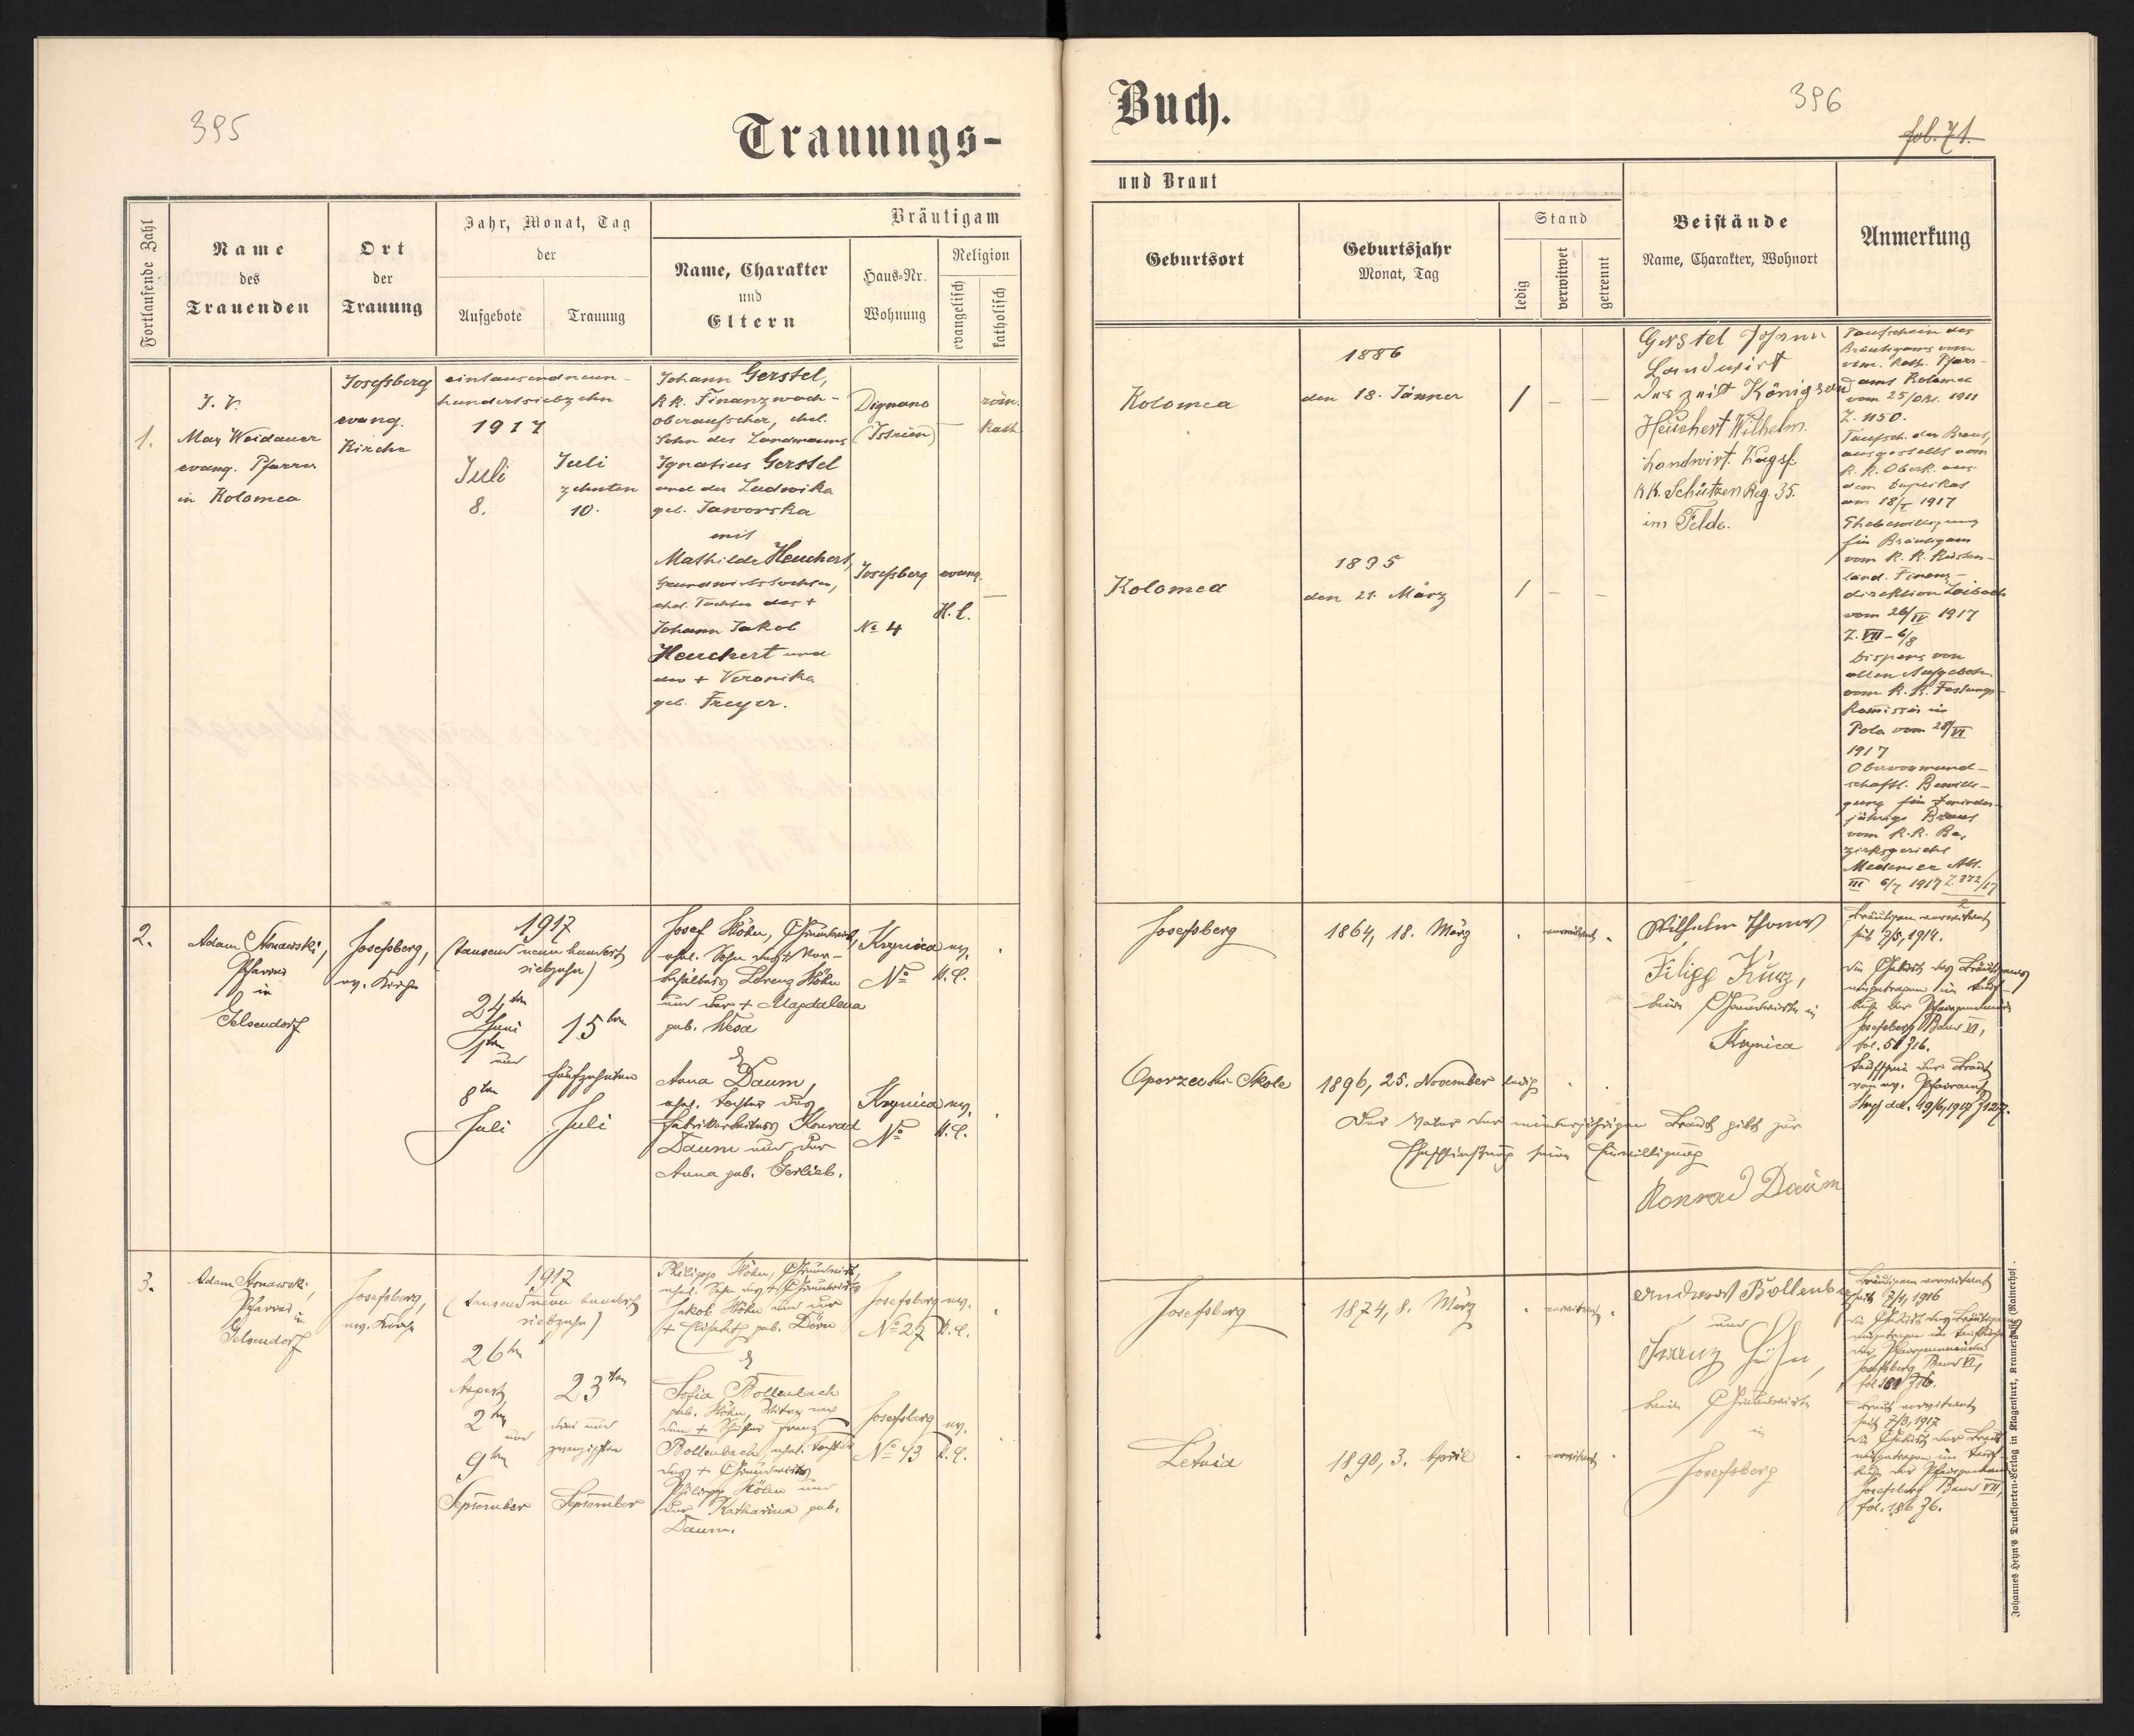 395
Trauungs-
Fortlaufende Zahl
Name
des
Trauenden
Ort
der
Trauung
Jahr, Monat, Tag
der
Aufgebote
Trauung
Bräutigam
Name, Charakter
und
Eltern
Haus-Nr.
Wohnung
Religion
evangelisch
katholisch
1.
I. V.
Max Weidauer
evang. Pfarrer
in Kolomea
Josefsberg
evang.
Kirche
eintausendneun-
hundertsiebzehn
1917
Juli
8.
Juli
zehnten
10.
Johann Gerstel,
k.k. Finanzwach-
oberaufseher, ehel.
Sohn des Landmanns
Ignatius Gerstel
und der Ludwika
geb. Jaworska
mit
Mathilde Heuchert,
Grundwirtstochter,
ehel. Tochter des +
Johann Jakob
Heuchert und
der + Veronika
geb. Freyer.
Dignano
(Istrien)
Josefsberg
No 4
evang.
H. C.
—
röm.
Kath.
—
2.
Adam Stonawski,
Pfarrer
in
Gelsendorf
Josefsberg,
ev. Kirche
1917
(tausend neun hundert
siebzehn)
24ten
Juni
1ten
und
8ten
Juli
15ten
fünfzehnten
Juli
Josef Höhn, Grundwirt,
ehel. Sohn des + Vor-
behälters Lorenz Höhn
und der + Magdalena
geb. Weså
&
Anna Daum,
ehel. Tochter des
Fabriksarbeiters Konrad
Daum und der
Anna geb. Gerlieb.
Krynica
No
ev.
H. C.
Krynica
No
ev.
H. C.
3.
Adam Stonawski,
Pfarrer
in
Gelsendorf
Josefsberg,
ev. Kirche
1917
(tausend neun hundert
siebzehn)
26ten
August
2ten
und
9ten
September
23ten
drei und
zwanzigsten
September
Philipp Höhn, Grundwirt,
ehel. Sohn des + Grundwirtes
Jakob Höhn und der
+ Elisabeth geb. Dörr
&
Sofia Bollenbach
geb. Höhn, Witwe nach
dem + Schuster Franz
Bollenbach, ehel. Tochter
des + Grundwirtes
Philipp Höhn und
der Katharina geb.
Daum.
Josefsberg
No 27
ev.
H. C.
Josefsberg
No 43
ev.
H. C.
Buch.
396
fol. 71.
und Braut
Geburtsort
Geburtsjahr
Monat, Tag
Stand
ledig
verwitwet
getrennt
Beistände
Name, Charakter, Wohnort
Anmerkung
Kolomea
1886
den 18. Jänner
/ — —
Kolomea
1895
den 21. März
/ — —
Gerstel Johann
Landwirt
derzeit Königsau
Heuchert Wilhelm.
Landwirt. Zugsf.
k.k. Schützen Reg. 35.
im Felde.
Taufschein des
Bräutigams vom
röm. kath. Pfarr-
amt Kolomea
vom 25/Okt. 1911
Z. 1150.
Taufsch. der Braut,
ausgestellt vom
k. k. Oberk. aus
dem Duplikat
am 18/I 1917
Ehebewilligung
für Bräutigam
vom k. k. Küsten-
länd. Finanz-
direktion Laibach
vom 26/IV 1917
Z. VII - 6/8
Dispens von
allen Aufgeboten
vom k. k. Festungs-
komissär in
Pola vom 28/VI
1917
Obervormund-
schaftl. Bewilli-
gung für minder-
jährige Braut
vom k. k. Be-
zirksgericht
Medenice Abt.
III 6/7 1917 Z. 372/17
Josefsberg
1864, 18. März
verwitwet
Wilhelm Thomas
Filipp Kurz,
beide Grundwirte in
Krynica
Bräutigam verwitwet
seit 7/5, 1914.
Die Geburt des Bräutigams
eingetragen im Tauf-
buch der Pfarrgemeinde
Josefsberg Band VI,
fol. 51 Z 16.
Taufschein der Braut
vom ev. Pfarramt
Stryj dd. 19/6, 1917 Z 127.
Oporzec bei Skole
1896, 25. November
ledig
Der Vater der minderjährigen Braut gibt zur
Eheschließung seine Einwilligung
Konrad Daum
Josefsberg
1874, 8. März
verwitwet
Andreas Bollenbach
und
Franz Höhn,
beide Grundwirte
in
Josefsberg
Bräutigam verwitwet
seit 7/4, 1916
Die Geburt des Bräutigams
eingetragen im Taufbuche
der Pfarrgemeinde
Josefsberg Band VI,
Braut verwitwet
seit 7/3, 1917
Die Geburt der Braut
eingetragen im Tauf-
buch der Pfarrgemeinde
Josefsberg Band VII,
fol. 186 Z 6.
Letnia
1890, 3. April
verwitwet
Johannes Heyn's Drucksorten-Verlag in Klagenfurt, Kramergasse (Rainerhof).